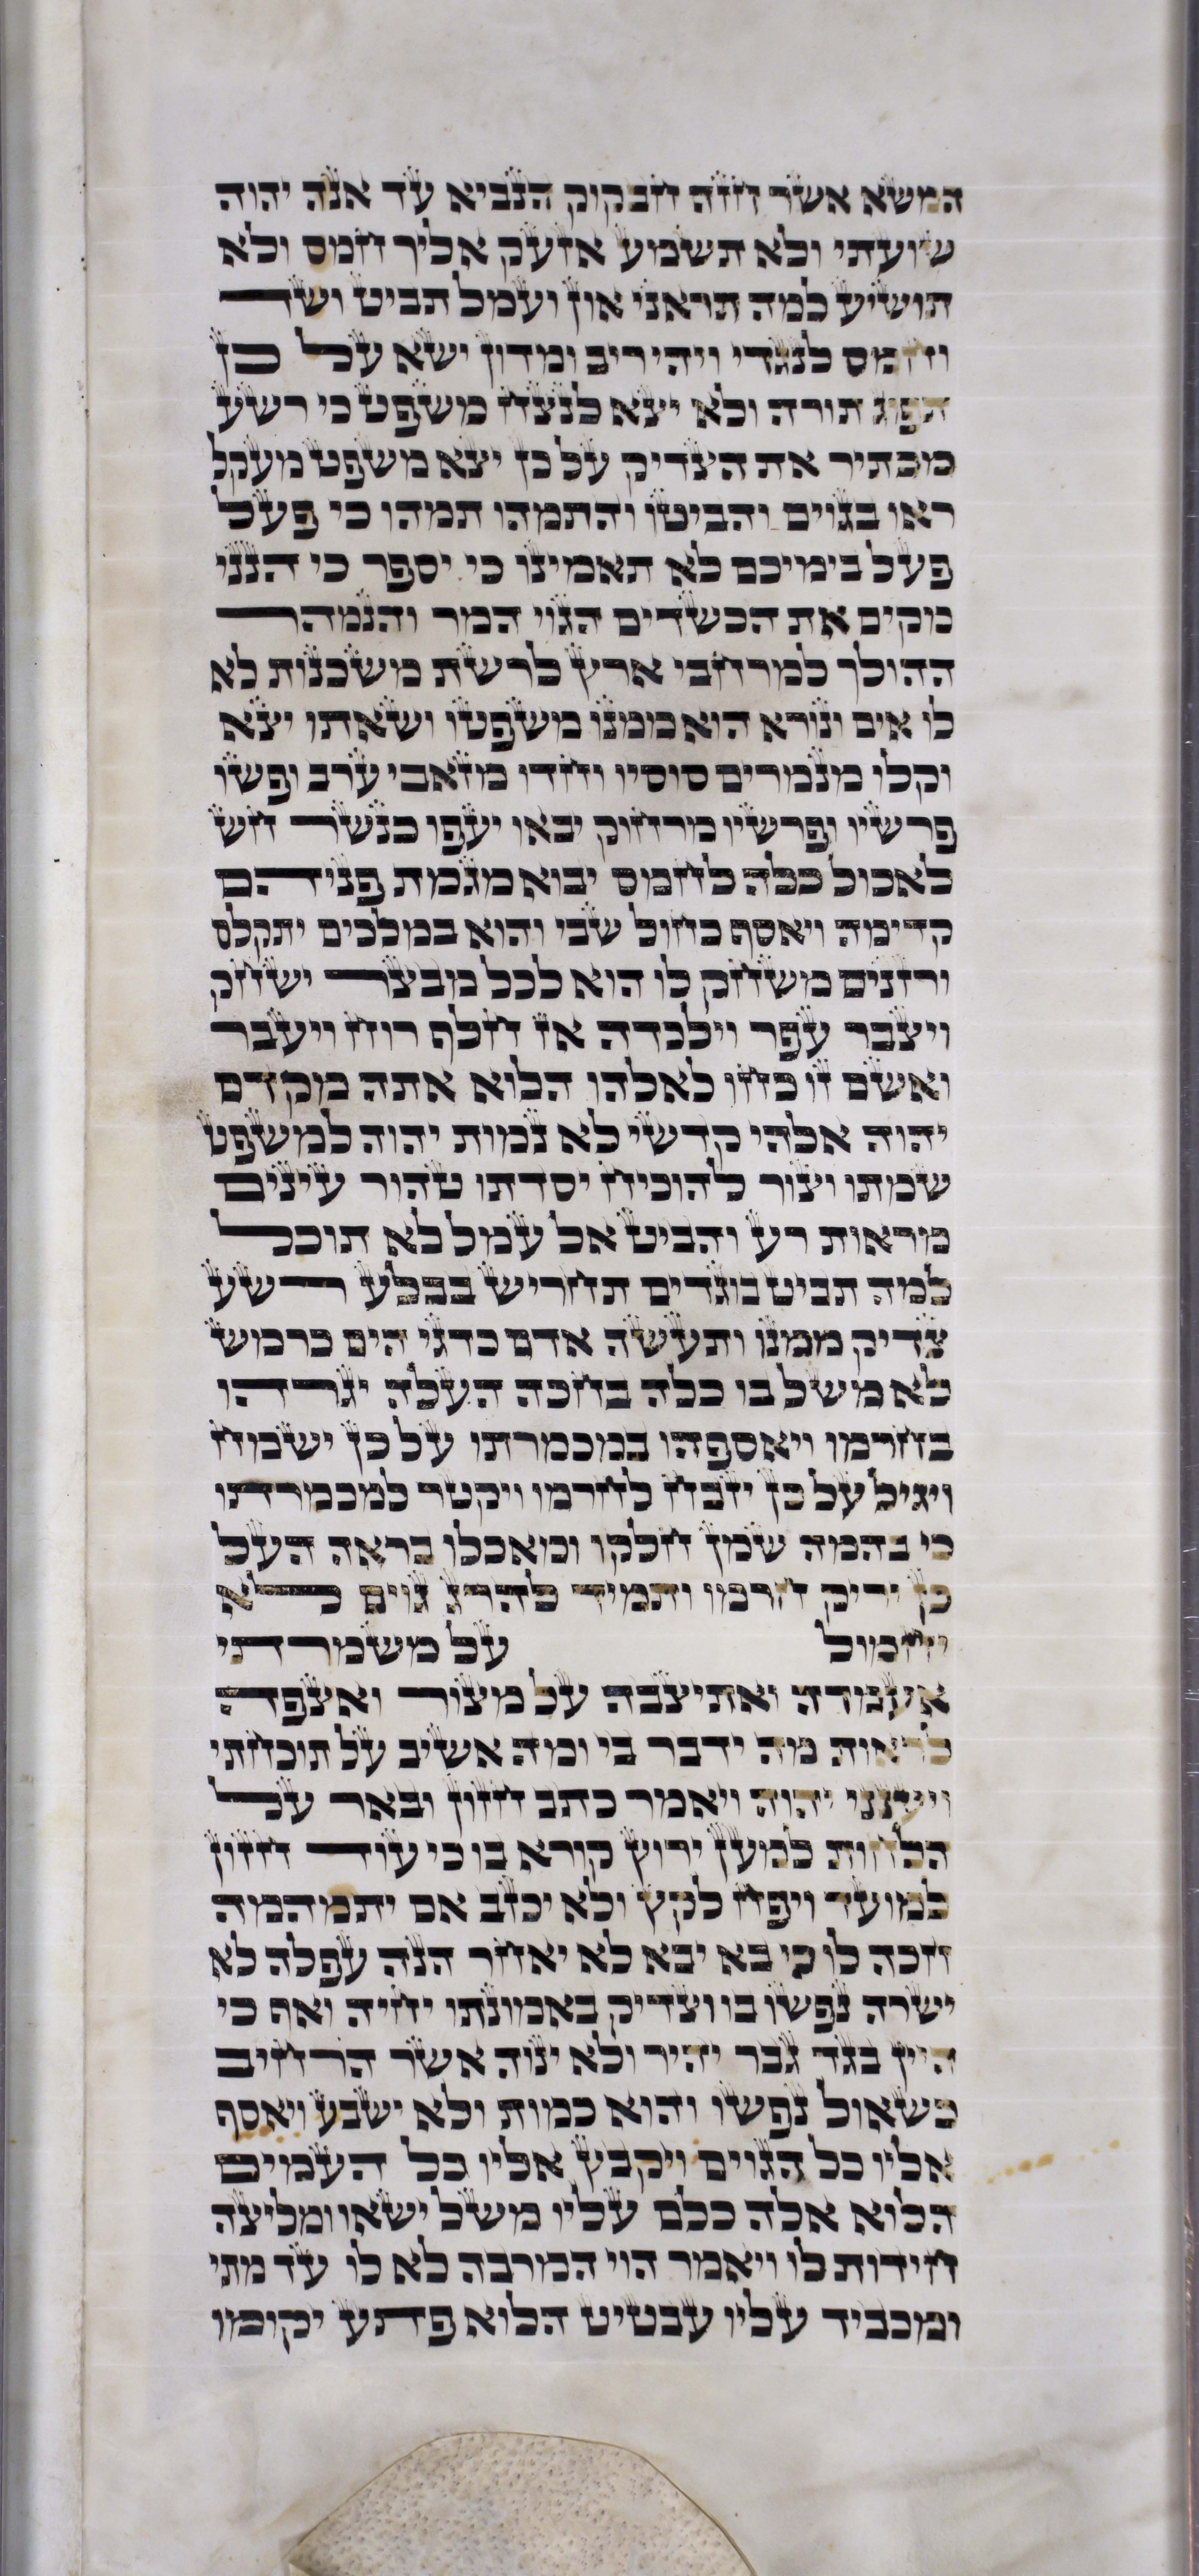 המשא אשר חזה חבקוק הנביא עד אנה יהוה
שועתי ולא תשמע אזעק אליך חמס ולא
תושיע למה תראני און ועמל תביט ושד
וחמס לנגדי ויהי ריב ומדון ישא על כן
תפוג תורה ולא יצא לנצח משפט כי רשע
מכתיר את הצדיק על כן יצא משפט מעקל
ראו בגוים והביטו והתמהו תמהו כי פעל
פעל בימיכם לא תאמינו כי יספר כי הנני
מקים את הכשדים הגוי המר והנמהר
ההולך למרחבי ארץ לרשת משכנות לא
לו אים ונורא הוא ממנו משפטו ושאתו יצא
וקלו מנמרים סוסיו וחדו מזאבי ערב ופשו
פרשיו ופרשיו מרחוק יבאו יעפו כנשר חש
לאכול כלה לחמס יבוא מגמת פניהם
קדימה ויאסף כחול שבי והוא במלכים יתקלס
ורזנים משחק לו הוא לכל מבצר ישחק
ויצבר עפר וילכדה אז חלף רוח ויעבר
ואשם זו כחו לאלהו הלוא אתה מקדם
יהוה אלהי קדשי לא נמות יהוה למשפט
שמתו וצור להוכיח יסדתו טהור עינים
מראות רע והביט אל עמל לא תוכל
למה תביט בוגדים תחריש בבלע רשע
צדיק ממנו ותעשה אדם כדגי הים כרמש
לא משל בו כלה בחכה העלה יגרהו
בחרמו ויאספהו במכמרתו על כן ישמח
ויגיל על כן יזבח לחרמו ויקטר למכמרתו
כי בהמה שמן חלקו ומאכלו בראה העל
כן יריק חרמו ותמיד להרג גוים לא
יחמול על משמרתי
אעמדה ואתיצבה על מצור ואצפה
לראות מה ידבר בי ומה אשיב על תוכחתי
ויענני יהוה ויאמר כתב חזון ובאר על
הלחות למען ירוץ קורא בו כי עוד חזון
למועד ויפח לקץ ולא יכזב אם יתמהמה
חכה לו כי בא יבא לא יאחר הנה עפלה לא
ישרה נפשו בו וצדיק באמונתו יחיה ואף כי
היין בגד גבר יהיר ולא ינוה אשר הרחיב
כשאול נפשו והוא כמות ולא ישבע ויאסף
אליו כל הגוים ויקבץ אליו כל העמים
הלוא אלה כלם עליו משל ישאו ומליצה
חידות לו ויאמר הוי המרבה לא לו עד מתי
ומכביד עליו עבטיט הלוא פתע יקומו